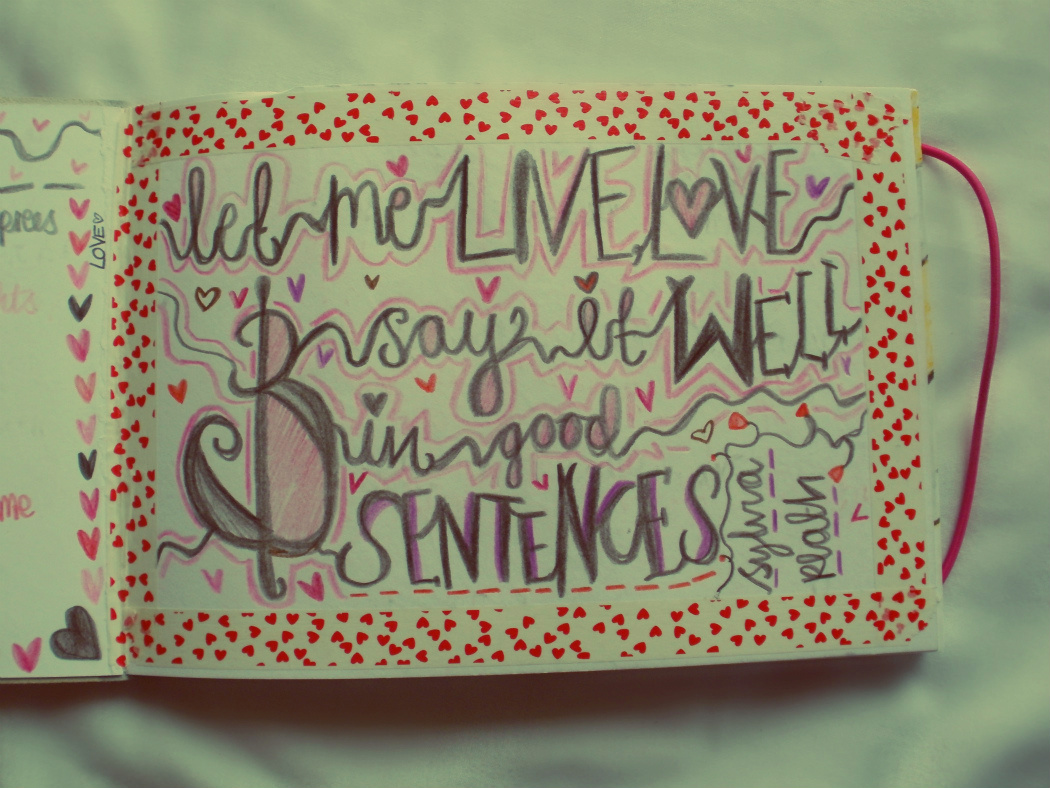 LOVE
hts
me
let me LIVE, LOVE
& say it WELL
in good
SENTENCES
sylvia
plath